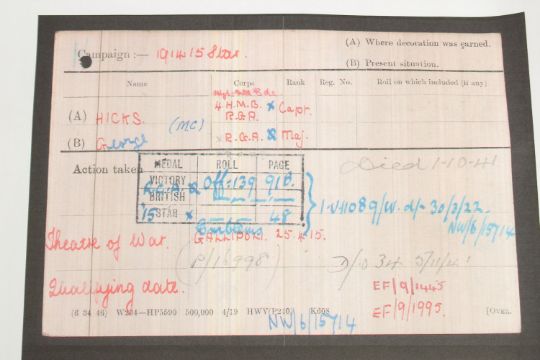 Campaign :— 1914 15 Star.
(A) Where decoration was earned.
(B) Present situation.
Name Corps Rank Reg. No. Roll on which included (if any)
(A) HICKS. 4 H.M.B. R.G.A. x Capt.
(B) George (MC) x R.G.A. x Maj.
Action taken
Died 1-10-41
MEDAL ROLL PAGE
VICTORY R.G.A. Off 139 91B.
BRITISH
15 STAR x 48
30/3/22.
NW/6/5714
Theatre of War. GALLIPOLI. 25.4.15.
(P/16998)
Qualifying date.
EF/9/1445
EF/9/1995.
(6 34 46) W234—HP5590 500,000 4/19 HWV(P240) K608 [OVER.
NW/6/15714